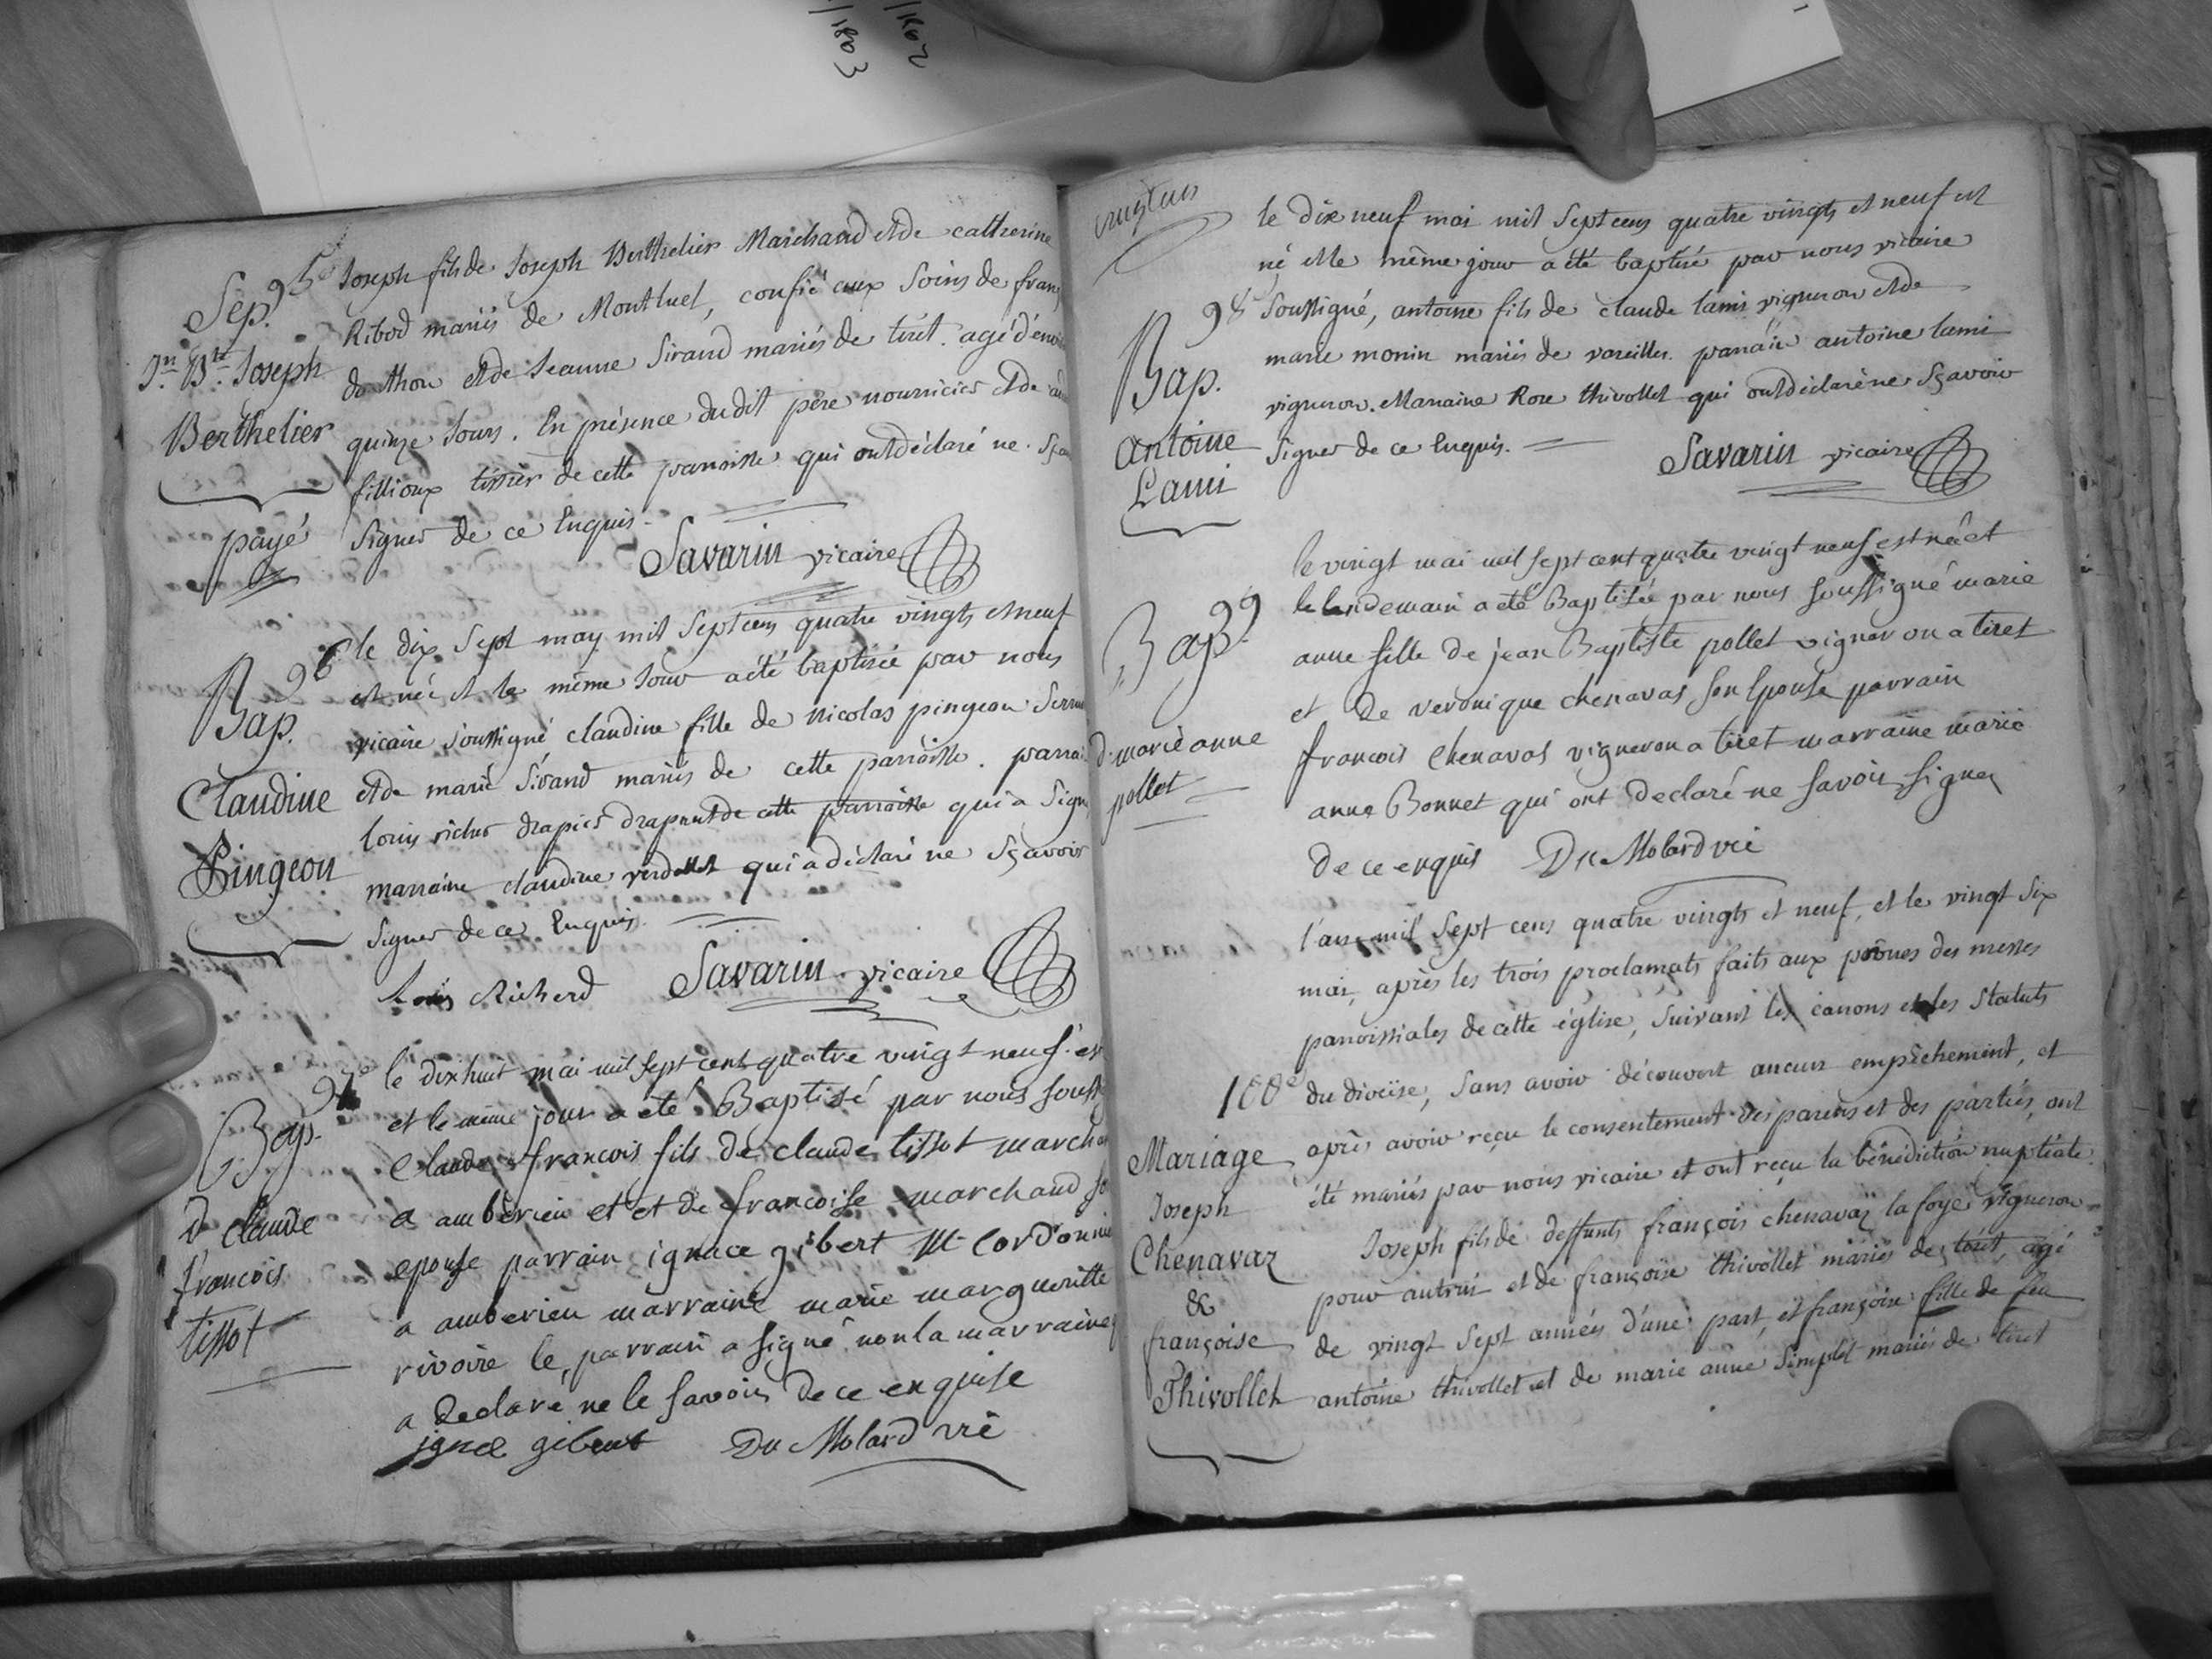 1802
1/1803
Sep. 95e
Jn. Bte. Joseph
Berthelier
payé
Joseph fils de Joseph Berthelier Marchand et de catherine
Ribod mariés de Montluel, confié aux Soins de fran
do thon et de Jeanne Sirand mariés de tiret. agé d'envi
quinze Jours. En présence dudit père nourricier et de
fillioux tissier de cette parroisse qui ont déclaré ne Sça
Signer de ce Enquis.
Savarin vicaire
Bap. 96e
Claudine
Pingeon
le dix Sept may mil Sept cens quatre vingts et neuf
est née et le même Jour a été baptisée par nous
vicaire soussigné claudine fille de Nicolas pingeon Serru
et de marie Sirand mariés de cette parroisse. parrai
louis richer drapier drapant de cette parroisse qui a Signé
marraine claudine verdellet qui a déclaré ne Sçavoir
Signer de ce Enquis.
Louis Richerd Savarin vicaire
Bap. 97e
d claude
francois
tissot
le dixhuit mai mil sept cent quatre vingt neuf est
et le même jour a été Baptisé par nous souss
Claude francois fils de claude tissot march
a amberieu et et de francoise marchand so
epouse parrain ignace gibert M Cordonnie
a amberieu marraine marie margueritte
rivoire le parrain a signé non la marraine
a declaré ne le savoir de ce enquise
ignace gibert Du Molard vré
vingtain
Bap. 98e
antoine
Lami
le dix neuf mai mil Sept cens quatre vingts et neuf est
né et le même jour a été baptisé par nous vicaire
Soussigné, antoine fils de claude lami vigneron et de
marie monin mariés de vareilles. parrain antoine lami
vigneron. Marraine Rose thivollet qui ont déclaré ne Sçavoir
Signer de ce Enquis.
Savarin vicaire
Bap. 99
d. marie anne
pollet
le vingt mai mil sept cent quatre vingt neuf est né et
le lendemain a eté Baptisée par nous soussigné marie
anne fille de jean Baptiste pollet vigneron a tiret
et de veronique chenavas son Epouse parrain
francois Chenavas vigneron a tiret marraine marie
anne Bonnet qui ont declaré ne savoir signer
de ce enquis Du Molard vié
100e
Mariage
Joseph
Chenavaz
&
françoise
Thivollet
l'an mil Sept cens quatre vingts et neuf, et le vingt Six
mai, après les trois proclamats faits aux prônes des messes
parroissiales de cette église, Suivant les canons et les Statuts
du diocèse, Sans avoir découvert aucun empêchement, et
après avoir reçu le consentement des parens et des parties, ont
été mariés par nous vicaire et ont reçu la bénédiction nuptiale.
Joseph fils de deffunts françois chenavaz la foye vigneron
pour autrui et de françoise thivollet mariés de tiret, agé
de vingt Sept années d'une part, et françoise fille de feu
antoine thivollet et de marie anne Simplet mariés de tiret